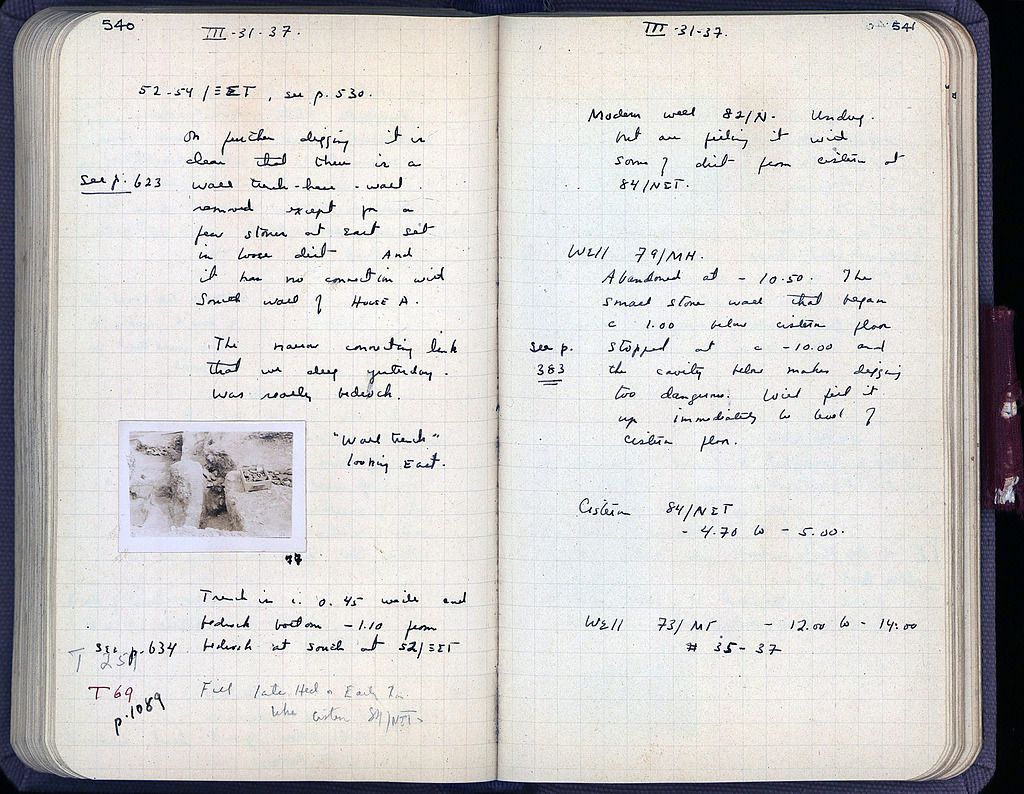 540
III-31-37.
52-54/ΞΣT, see p. 530.
On further digging it is
clear that there is a
see p. 623
wall trench-here - wall
removed except for a
few stones at East set
in loose dirt And
it has no connection with
South wall of HOUSE A.
The narrow connecting link
that we dug yesterday
was really bedrock.
"Wall trench"
looking East.
77
Trench is c. 0.45 wide and
bedrock bottom -1.10 from
see p. 634
bedrock at south at 52/ΞΣT
T 25
T 69
p. 1089
Fill late Hel
like cistern 84/NΣT-
541
III-31-37.
Modern well 82/N. Undug.
but are filling it with
some of dirt from cistern at
84/NΣT.
WELL 79/MH.
Abandoned at - 10.50. The
small stone well that began
c 1.00 below cistern floor
see p.
383
stopped at c -10.00 and
the cavity below makes digging
too dangerous. Will fill it
up immediately to level of
cistern floor.
Cistern 84/NΣT
- 4.70 to - 5.00.
WELL 73/ - 12.00 to - 14.00
# 35-37